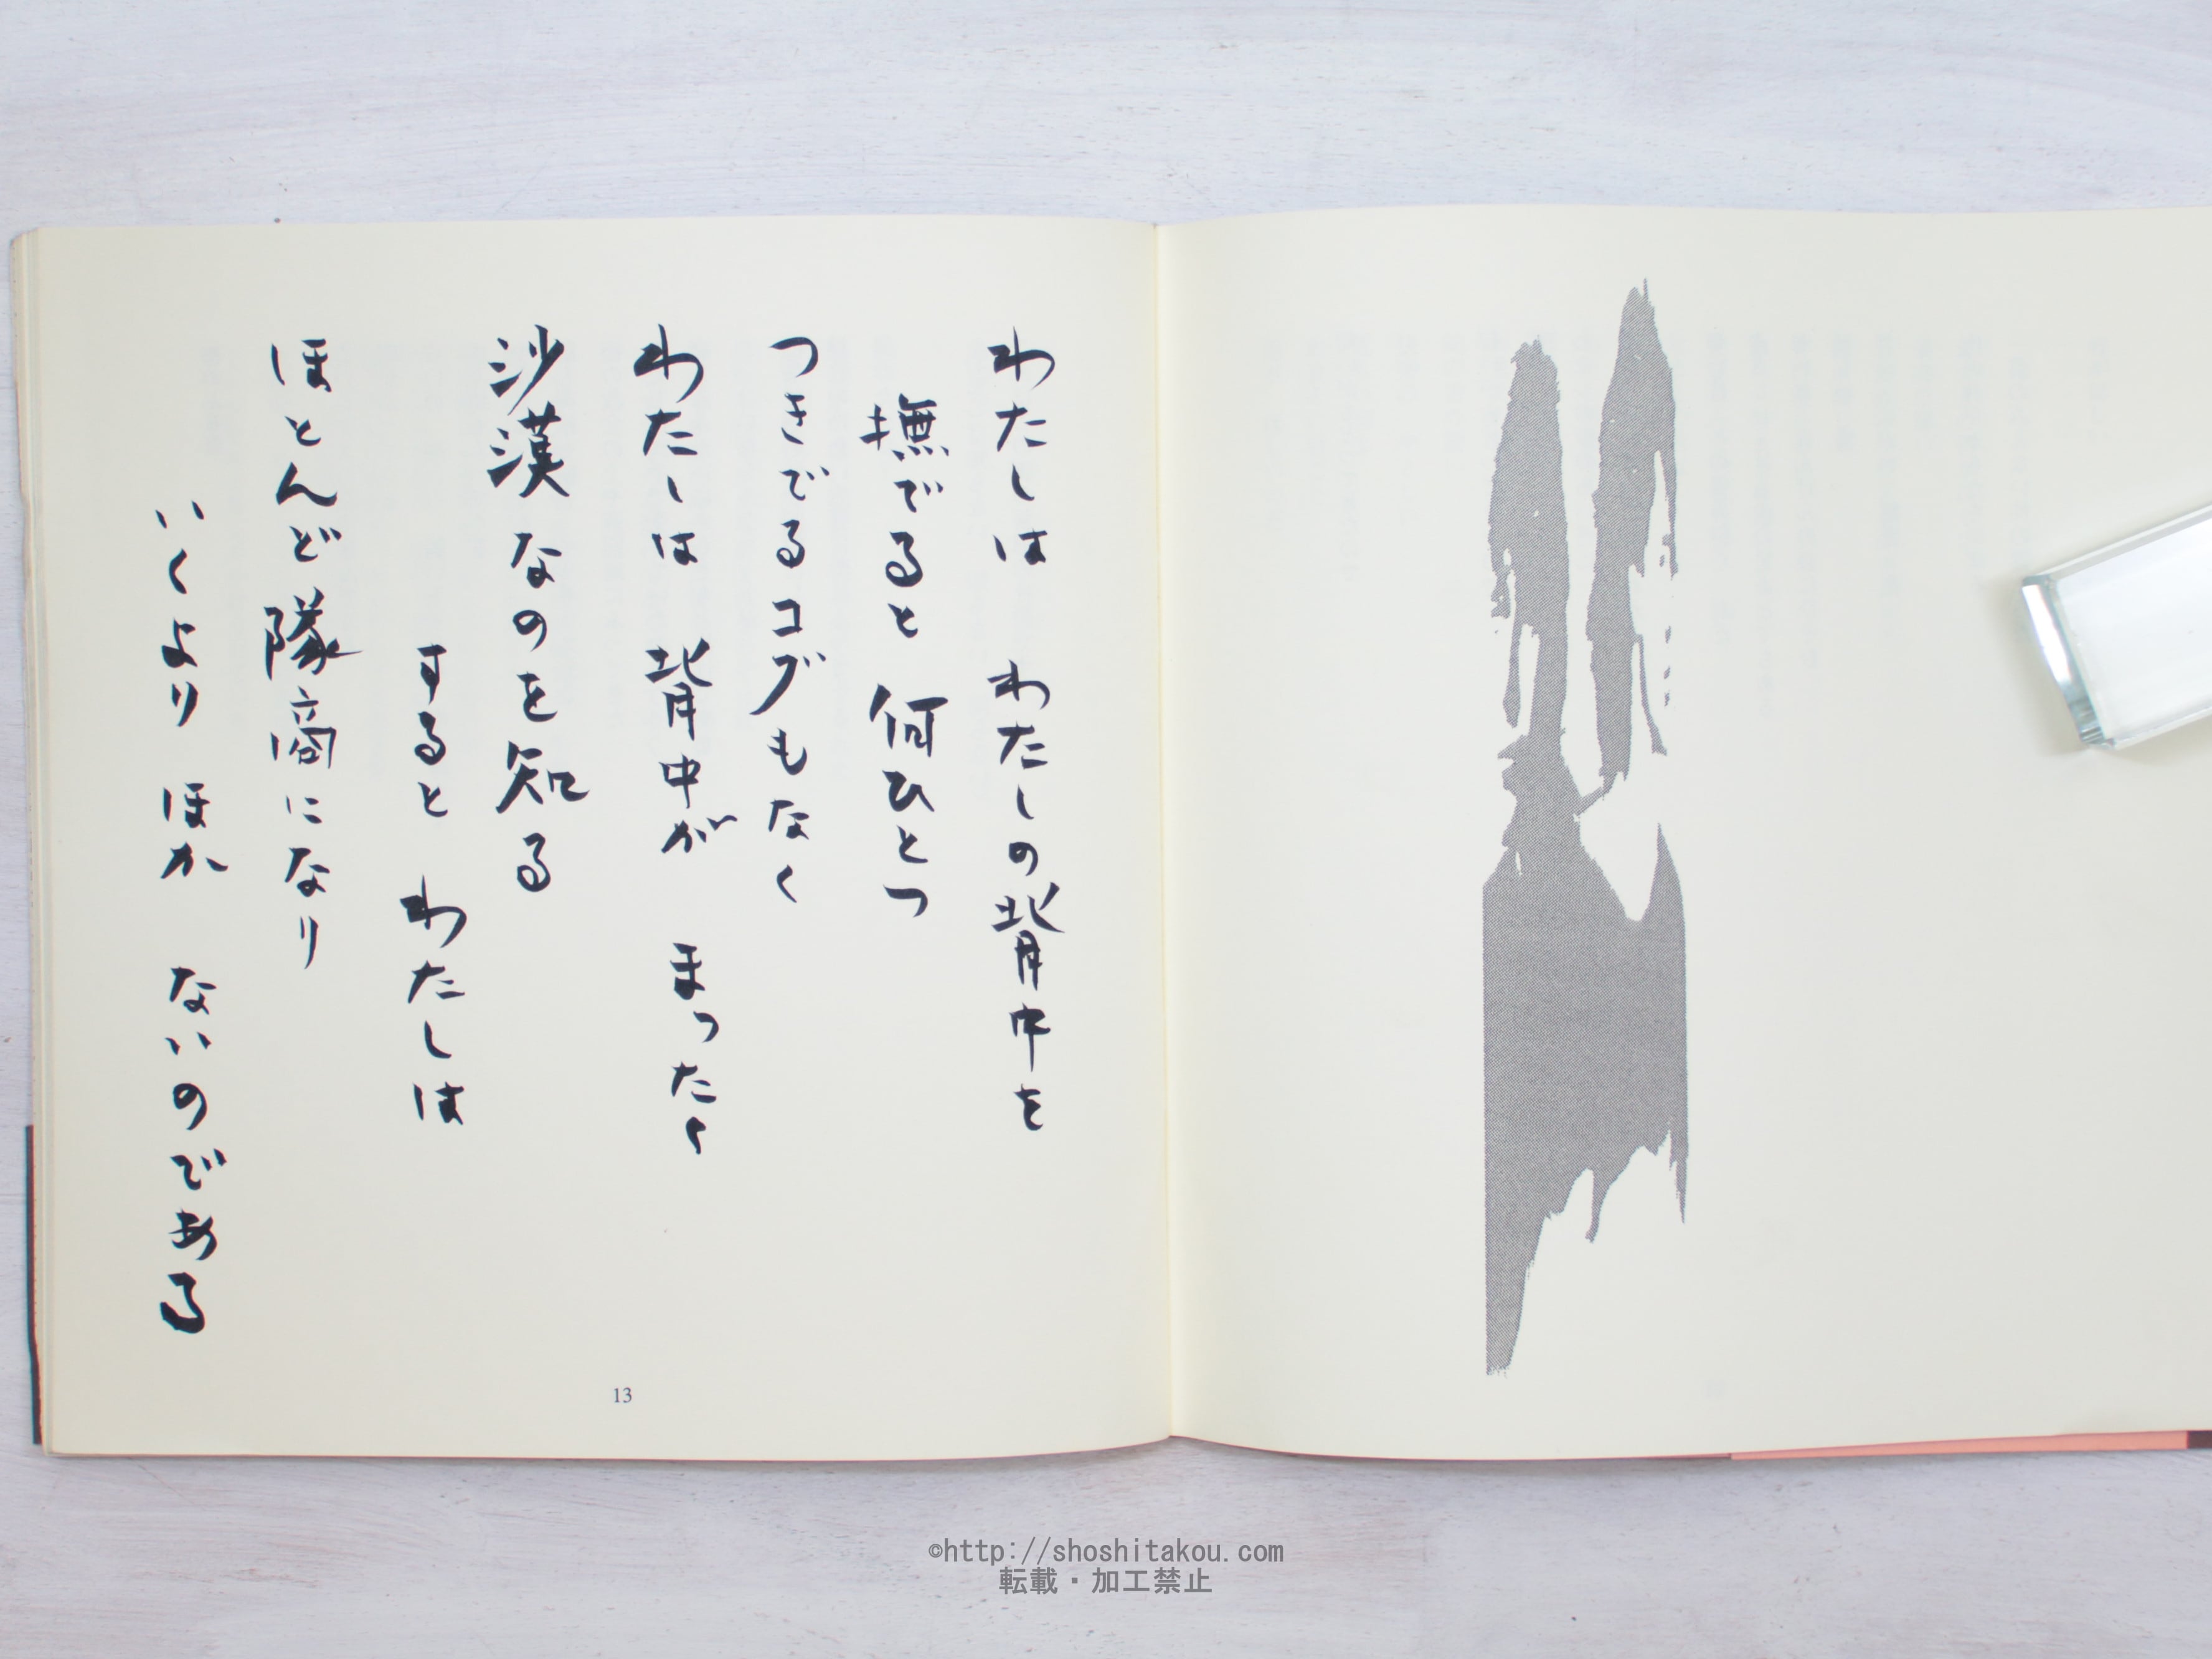 わたしは　わたしの背中を
撫でると　何ひとつ
つきでるコグもなく
わたしは　背中が　まったく
沙漠なのを知る
すると　わたしは
ほとんど隊商になり
いくより　ほか　ないのである
13
©http://shoshitakou.com
転載・加工禁止